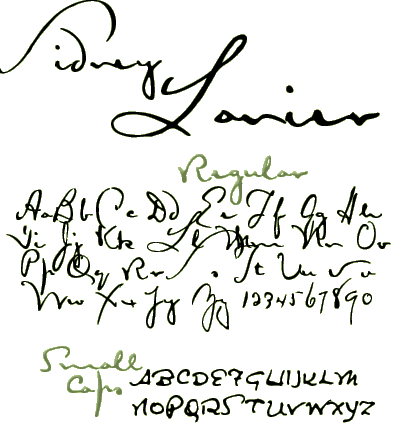 Sidney
Lanier
Regular
Aa Bb Cc Dd Ee Ff Gg Hh
Ii Jj Kk Ll Mm Nn Oo
Pp Qq Rr Ss Tt Uu Vv
Ww Xx Yy Zz 1234567890
Small
Caps
ABCDEFGHIJKLM
NOPQRSTUVWXYZ